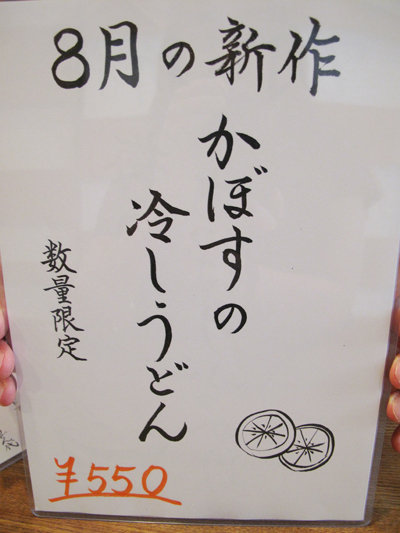 8月の新作
かぼすの
冷しうどん
数量限定
¥550